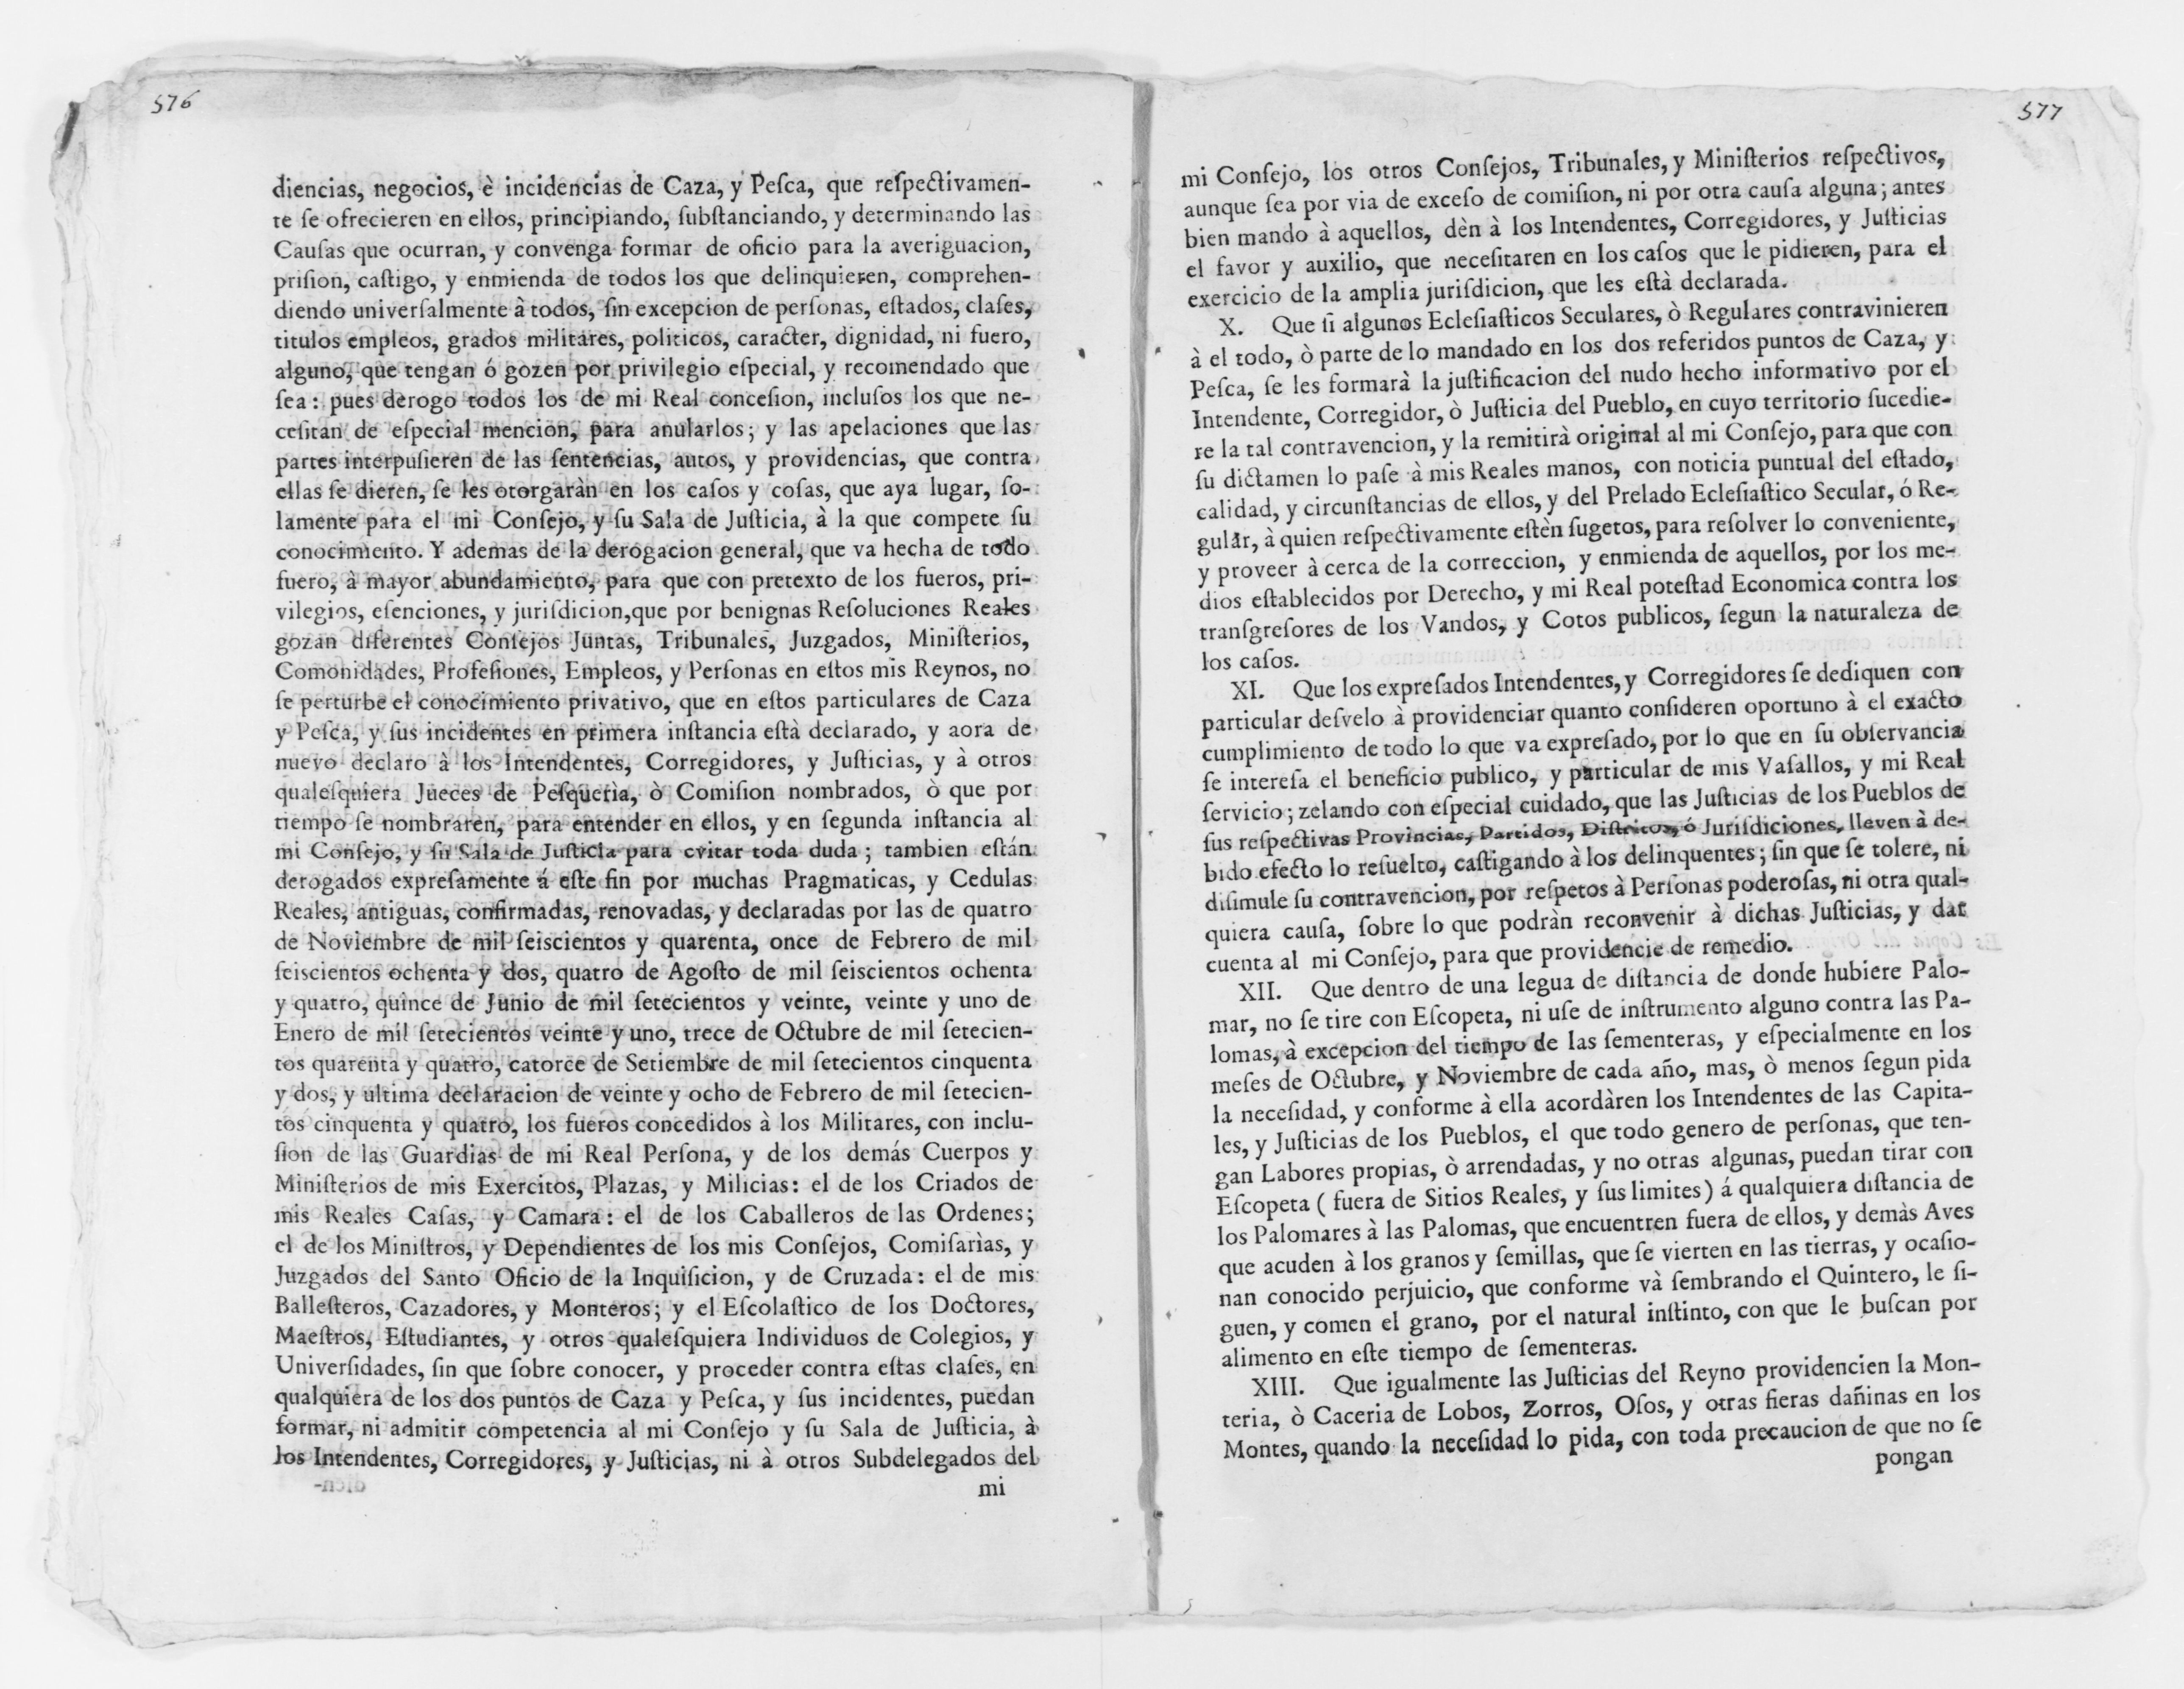 576
diencias, negocios, è incidencias de Caza, y Peſca, que reſpectivamen-
te ſe ofrecieren en ellos, principiando, ſubſtanciando, y determinando las
Cauſas que ocurran, y convenga formar de oficio para la averiguacion,
priſion, caſtigo, y enmienda de todos los que delinquieren, comprehen-
diendo univerſalmente â todos, ſin excepcion de perſonas, eſtados, claſes,
titulos empleos, grados militares, politicos, caracter, dignidad, ni fuero,
alguno, que tengan ó gozen por privilegio eſpecial, y recomendado que
ſea: pues derogo todos los de mi Real conceſion, incluſos los que ne-
ceſitan de eſpecial mencion, para anularlos; y las apelaciones que las
partes interpuſieren de las ſentencias, autos, y providencias, que contra
ellas ſe dieren, ſe les otorgaràn en los caſos y coſas, que aya lugar, ſo-
lamente para el mi Conſejo, y ſu Sala de Juſticia, à la que compete ſu
conocimiento. Y ademas de la derogacion general, que va hecha de todo
fuero, à mayor abundamiento, para que con pretexto de los fueros, pri-
vilegios, eſenciones, y juriſdicion,que por benignas Reſoluciones Reales
gozan diferentes Conſejos Juntas, Tribunales, Juzgados, Miniſterios,
Comonidades, Profeſiones, Empleos, y Perſonas en eſtos mis Reynos, no
ſe perturbe el conocimiento privativo, que en eſtos particulares de Caza
y Peſca, y ſus incidentes en primera inſtancia eſtà declarado, y aora de
nuevo declaro à los Intendentes, Corregidores, y Juſticias, y à otros
qualeſquiera Jueces de Peſquerìa, ò Comiſion nombrados, ò que por
tiempo ſe nombraren, para entender en ellos, y en ſegunda inſtancia al
mi Conſejo, y ſu Sala de Juſticia para evitar toda duda; tambien eſtán
derogados expreſamente á eſte fin por muchas Pragmaticas, y Cedulas
Reales, antiguas, confirmadas, renovadas, y declaradas por las de quatro
de Noviembre de mil ſeiscientos y quarenta, once de Febrero de mil
ſeiscientos ochenta y dos, quatro de Agoſto de mil ſeiscientos ochenta
y quatro, quince de Junio de mil ſetecientos y veinte, veinte y uno de
Enero de mil ſetecientos veinte y uno, trece de Octubre de mil ſetecien-
tos quarenta y quatro, catorce de Setiembre de mil ſetecientos cinquenta
y dos, y ultima declaracion de veinte y ocho de Febrero de mil ſetecien-
tos cinquenta y quatro, los fueros concedidos à los Militares, con inclu-
ſion de las Guardias de mi Real Perſona, y de los demás Cuerpos y
Miniſterios de mis Exercitos, Plazas, y Milicias: el de los Criados de
mis Reales Caſas, y Camara: el de los Caballeros de las Ordenes;
el de los Miniſtros, y Dependientes de los mis Conſejos, Comiſarìas, y
Juzgados del Santo Oficio de la Inquiſicion, y de Cruzada: el de mis
Balleſteros, Cazadores, y Monteros; y el Eſcolaſtico de los Doctores,
Maeſtros, Eſtudiantes, y otros qualeſquiera Individuos de Colegios, y
Univerſidades, ſin que ſobre conocer, y proceder contra eſtas claſes, en
qualquiera de los dos puntos de Caza y Peſca, y ſus incidentes, puedan
formar, ni admitir competencia al mi Conſejo y ſu Sala de Juſticia, à
los Intendentes, Corregidores, y Juſticias, ni à otros Subdelegados del
mi
577
mi Conſejo, los otros Conſejos, Tribunales, y Miniſterios reſpectivos,
aunque ſea por via de exceſo de comiſion, ni por otra cauſa alguna; antes
bien mando à aquellos, dèn à los Intendentes, Corregidores, y Juſticias
el favor y auxilio, que neceſitaren en los caſos que le pidieren, para el
exercicio de la amplia juriſdicion, que les eſtà declarada.
X. Que ſi algunos Ecleſiaſticos Seculares, ò Regulares contravinieren
à el todo, ò parte de lo mandado en los dos referidos puntos de Caza, y
Peſca, ſe les formarà la juſtificacion del nudo hecho informativo por el
Intendente, Corregidor, ò Juſticia del Pueblo, en cuyo territorio ſucedie-
re la tal contravencion, y la remitirà original al mi Conſejo, para que con
ſu dictamen lo paſe à mis Reales manos, con noticia puntual del eſtado,
calidad, y circunſtancias de ellos, y del Prelado Ecleſiaſtico Secular, ó Re-
gular, à quien reſpectivamente eſtèn ſugetos, para reſolver lo conveniente,
y proveer à cerca de la correccion, y enmienda de aquellos, por los me-
dios eſtablecidos por Derecho, y mi Real poteſtad Economica contra los
tranſgreſores de los Vandos, y Cotos publicos, ſegun la naturaleza de
los caſos.
XI. Que los expreſados Intendentes, y Corregidores ſe dediquen con
particular deſvelo à providenciar quanto conſideren oportuno à el exacto
cumplimiento de todo lo que va expreſado, por lo que en ſu obſervancia
ſe intereſa el beneficio publico, y particular de mis Vaſallos, y mi Real
ſervicio; zelando con eſpecial cuidado, que las Juſticias de los Pueblos de
ſus reſpectivas Provincias, Partidos, Diſtritos, ó Juriſdiciones, lleven à de-
bido efecto lo reſuelto, caſtigando à los delinquentes; ſin que ſe tolere, ni
diſimule ſu contravencion, por reſpetos à Perſonas poderoſas, ni otra qual-
quiera cauſa, ſobre lo que podràn reconvenir à dichas Juſticias, y dar
cuenta al mi Conſejo, para que providencie de remedio.
XII. Que dentro de una legua de diſtancia de donde hubiere Palo-
mar, no ſe tire con Eſcopeta, ni uſe de inſtrumento alguno contra las Pa-
lomas, à excepcion del tiempo de las ſementeras, y eſpecialmente en los
meſes de Octubre, y Noviembre de cada año, mas, ò menos ſegun pida
la neceſidad, y conforme à ella acordàren los Intendentes de las Capita-
les, y Juſticias de los Pueblos, el que todo genero de perſonas, que ten-
gan Labores propias, ò arrendadas, y no otras algunas, puedan tirar con
Eſcopeta ( fuera de Sitios Reales, y ſus limites) á qualquiera diſtancia de
los Palomares à las Palomas, que encuentren fuera de ellos, y demàs Aves
que acuden à los granos y ſemillas, que ſe vierten en las tierras, y ocaſio-
nan conocido perjuicio, que conforme và ſembrando el Quintero, le ſi-
guen, y comen el grano, por el natural inſtinto, con que le buſcan por
alimento en eſte tiempo de ſementeras.
XIII. Que igualmente las Juſticias del Reyno providencien la Mon-
teria, ò Caceria de Lobos, Zorros, Oſos, y otras fieras dañinas en los
Montes, quando la neceſidad lo pida, con toda precaucion de que no ſe
pongan